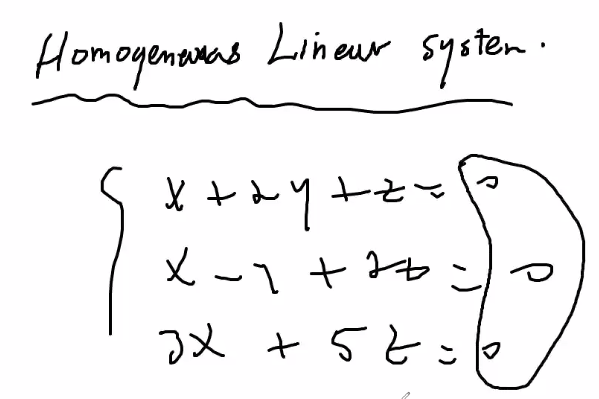 Homogeneous Linear system.
x + 2y + z = 0
x - y + 2z = 0
3x + 5z = 0